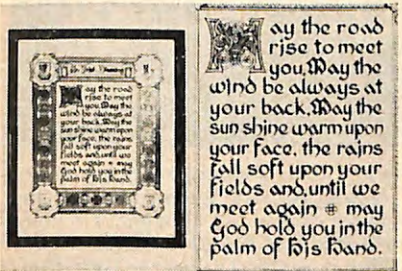 An Irish Blessing
May the road
rise to meet
you. May the
wind be always at
your back. May the
sun shine warm upon
your face, the rains
fall soft upon your
fields and, until we
meet again may
God hold you in the
palm of his hand.
May the road
rise to meet
you. May the
wind be always at
your back. May the
sun shine warm upon
your face, the rains
fall soft upon your
fields and, until we
meet again may
God hold you in the
palm of his hand.